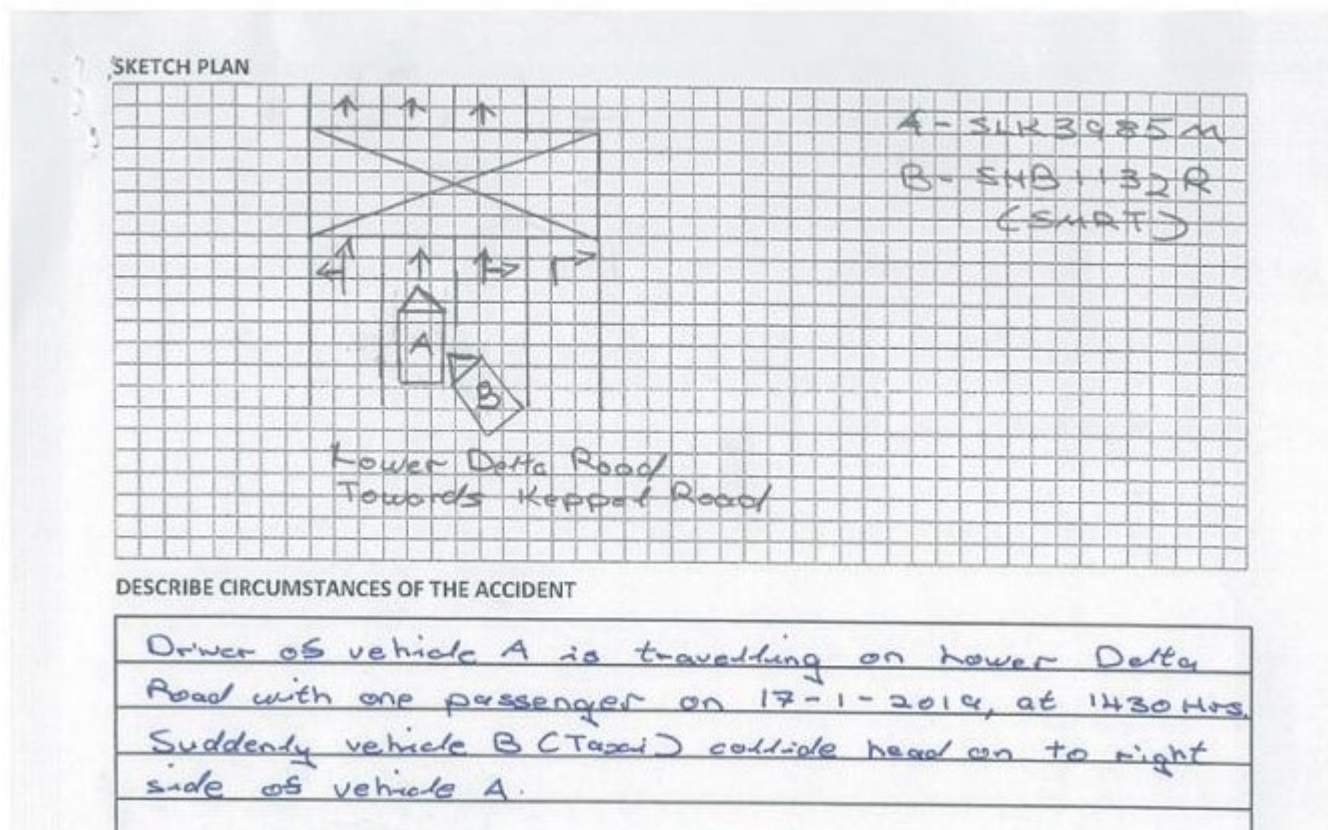 SKETCH PLAN
A - SLK3985M
B - SHB1132R
(SMRT)
A
B
Lower Delta Road
Towards Keppel Road
DESCRIBE CIRCUMSTANCES OF THE ACCIDENT
Driver of vehicle A is travelling on Lower Delta
Road with one passenger on 17-1-2019, at 1430 Hrs.
Suddenly vehicle B (Taxi) collide head on to right
side of vehicle A.